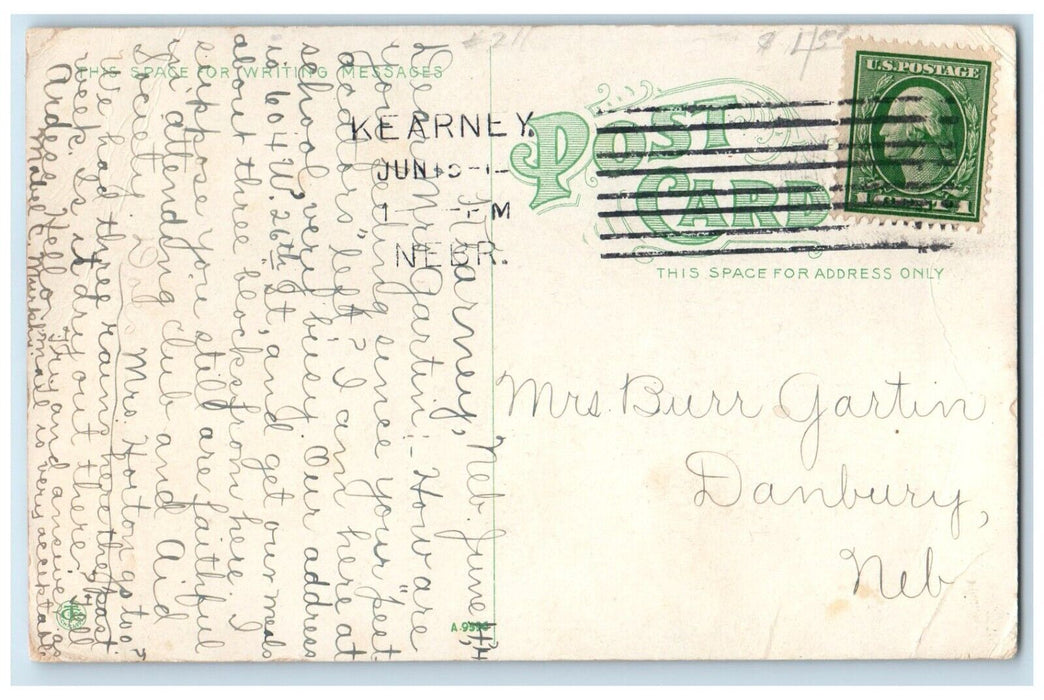 #211
$4.50
THIS SPACE FOR WRITING MESSAGES
POST CARD
KEARNEY.
JUN
1 PM
NEBR.
U.S. POSTAGE
1 CENT 1
THIS SPACE FOR ADDRESS ONLY
Mrs. Burr Gartin
Danbury,
Neb.
A-9
Kearney, Neb. June 14,
Dear Mrs. Gartin:- How are
you feeling since your "pest
boarders" left? I am here at
school very busy. Our address
is 604 W. 26th St, and get our meals
about three blocks from here. I
suppose you still are faithful
in attending club and Aid
Society. Mrs. Horton goes too?
We had three rains here the past
week. Is it dry out there? Tell
Hello and answer
Mabel E. is very acceptable.